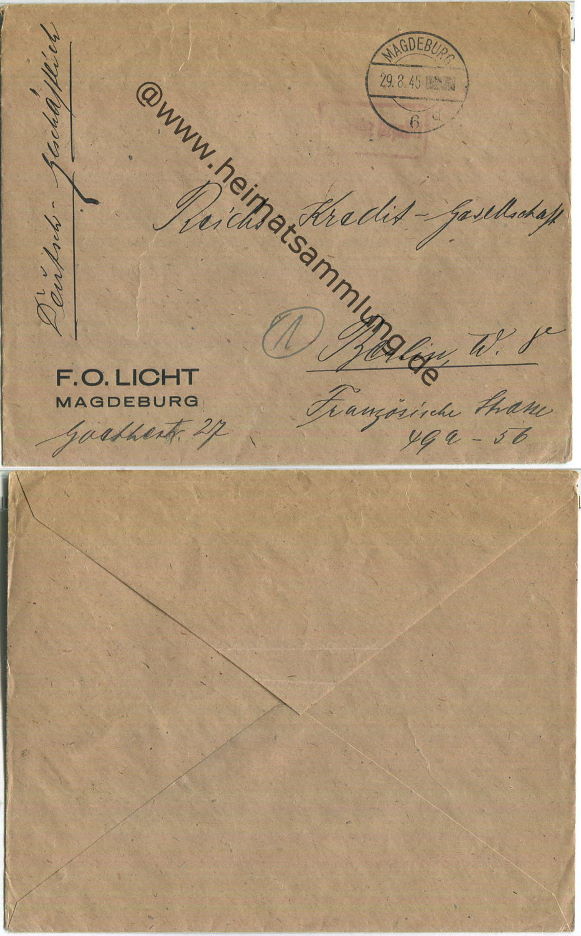 Deutsch - geschäftlich
MAGDEBURG
29.8.45
6 d
@www.heimatsammlung.de
Reichs Kredit - Gesellschaft
1
Berlin, W. 8
F. O. LICHT
MAGDEBURG
Goethestr. 27
Französische Strasse
49a - 56